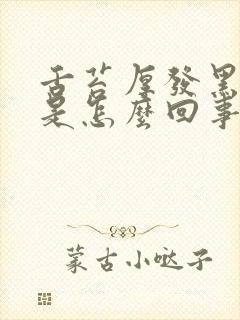 舌苔厚發黑
是怎麼回事
蒙古小哒子